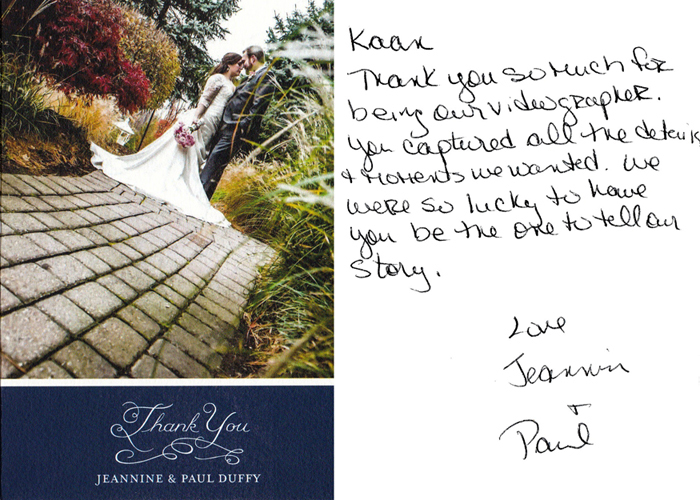 Thank You
JEANNINE & PAUL DUFFY
Kaan
Thank you so much for
being our videographer.
You captured all the details
& moments we wanted. We
were so lucky to have
you be the one to tell our
story.
Love
Jeannin
+
Paul